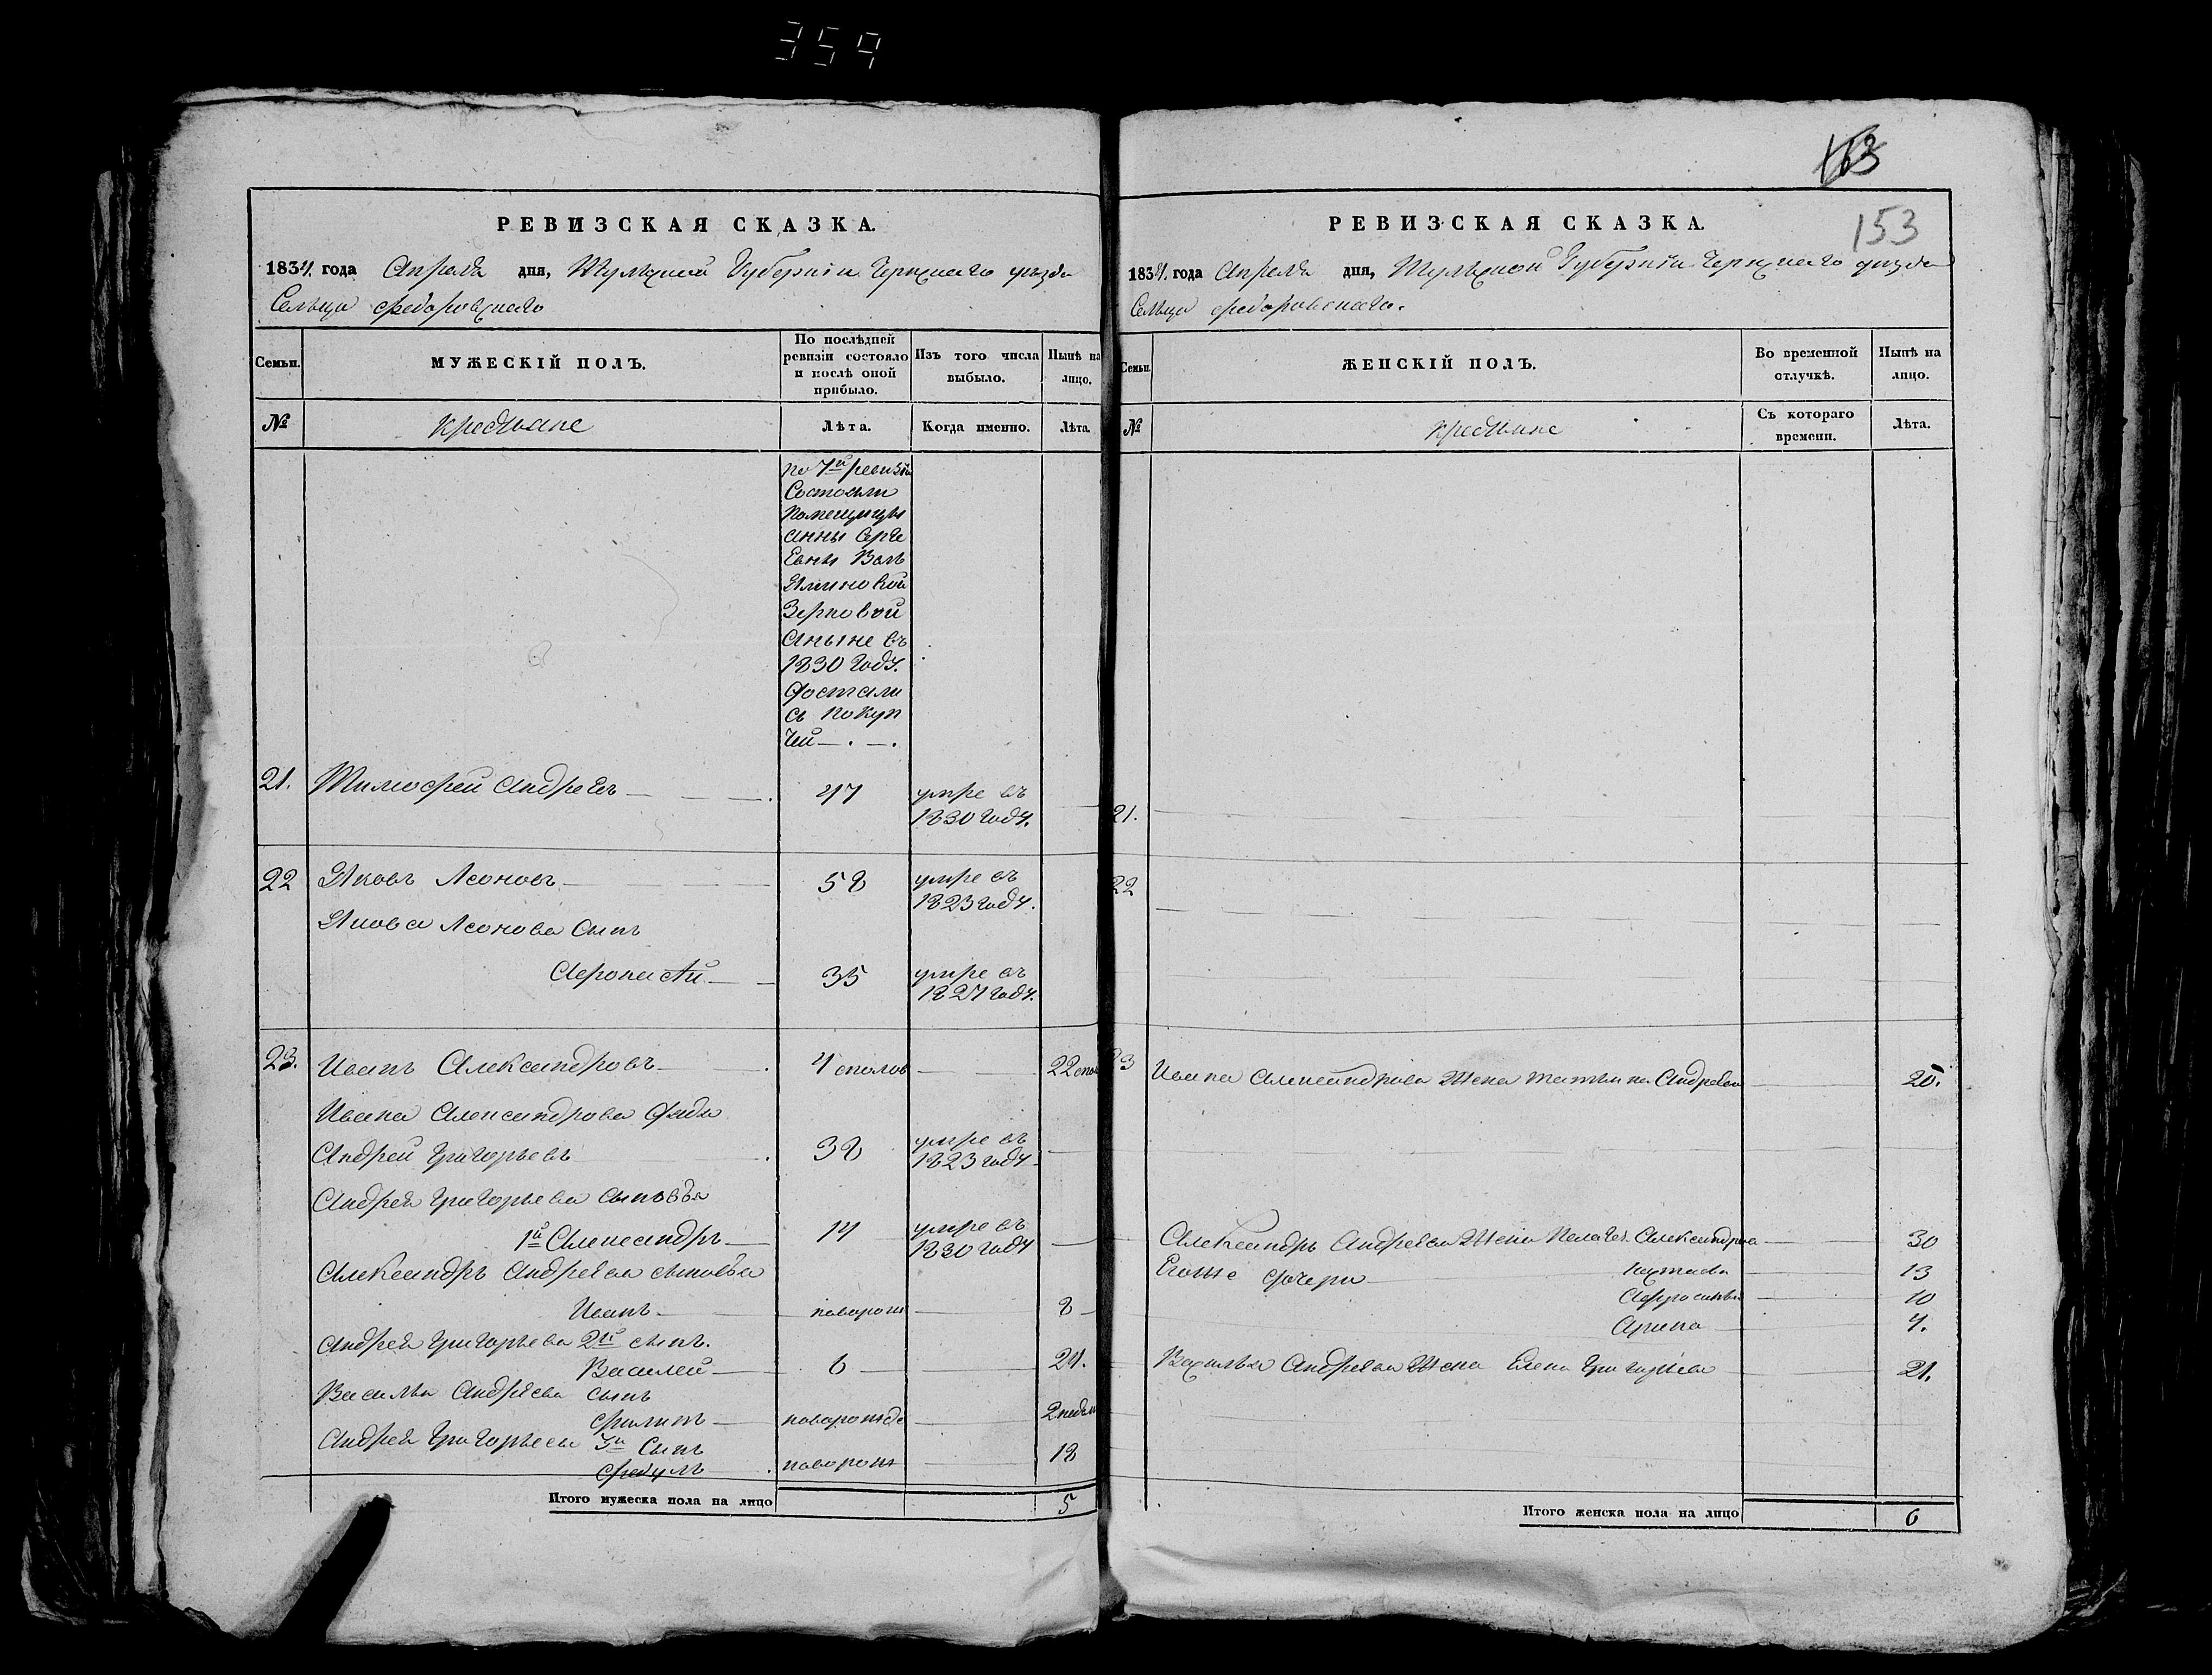 359
РЕВИЗСКАЯ СКАЗКА.
1834. года Апреля дня, Тульской Губернiи Чернскаго уезда
Сельца Федоровскаго
Семьи.
МУЖЕСКIЙ ПОЛЪ.
По послѣдней ревизiи состояло и послѣ оной прибыло.
Изъ того числа выбыло.
Нынѣ на лицо.
№
крестьяне
Лѣта.
Когда именно.
Лѣта.
по 7й ревизiи
Состояли
помещицы
Анны Серге
Евны Вель
Яминовой
Зерновой
Аныне въ
1830 году.
Достали
сь покуп
чей
21. Тимофей Андреевъ 47 умре въ
1830 году.
22 Яковъ Леоновъ 58 умре въ
1823 году.
Якова Леонова сынъ
35 умре въ
1827 году.
23. Иванъ Александровъ 4 сполов 22 спол
Ивана Александрова дядя
Андрей Григорьевъ 38 умре въ
1823 году
Андрея Григорьева сыновья
1й Александръ 14 умре въ
1830 году
Александръ Андреева сыновья
Иванъ новорож 8
Андрея Григорьева 2й сынъ.
Василей 6 24.
Василья Андреева сынъ
Филипъ новорожде 2 недели
Андрея Григорьева 3й Сынъ
Федулъ новорож 18
Итого мужеска пола на лицо 5
163
153
РЕВИЗСКАЯ СКАЗКА.
1834. года Апреля дня, Тульской Губернiи Чернскаго уезда
Сельца Федоровскаго.
Семьи.
ЖЕНСКIЙ ПОЛЪ.
Во временной отлучкѣ.
Нынѣ на лицо.
№
крестьяне
Съ котораго времени.
Лѣта.
21.
22
23 Ивана Александрова жена Татьяна Андреева 20.
Александръ Андреева жена Пелагея Александрова 30
Егоже дочери 13
Афросинья 10
Арина 4.
Василья Андреева жена Елена Григорьева 21.
Итого женска пола на лицо 6